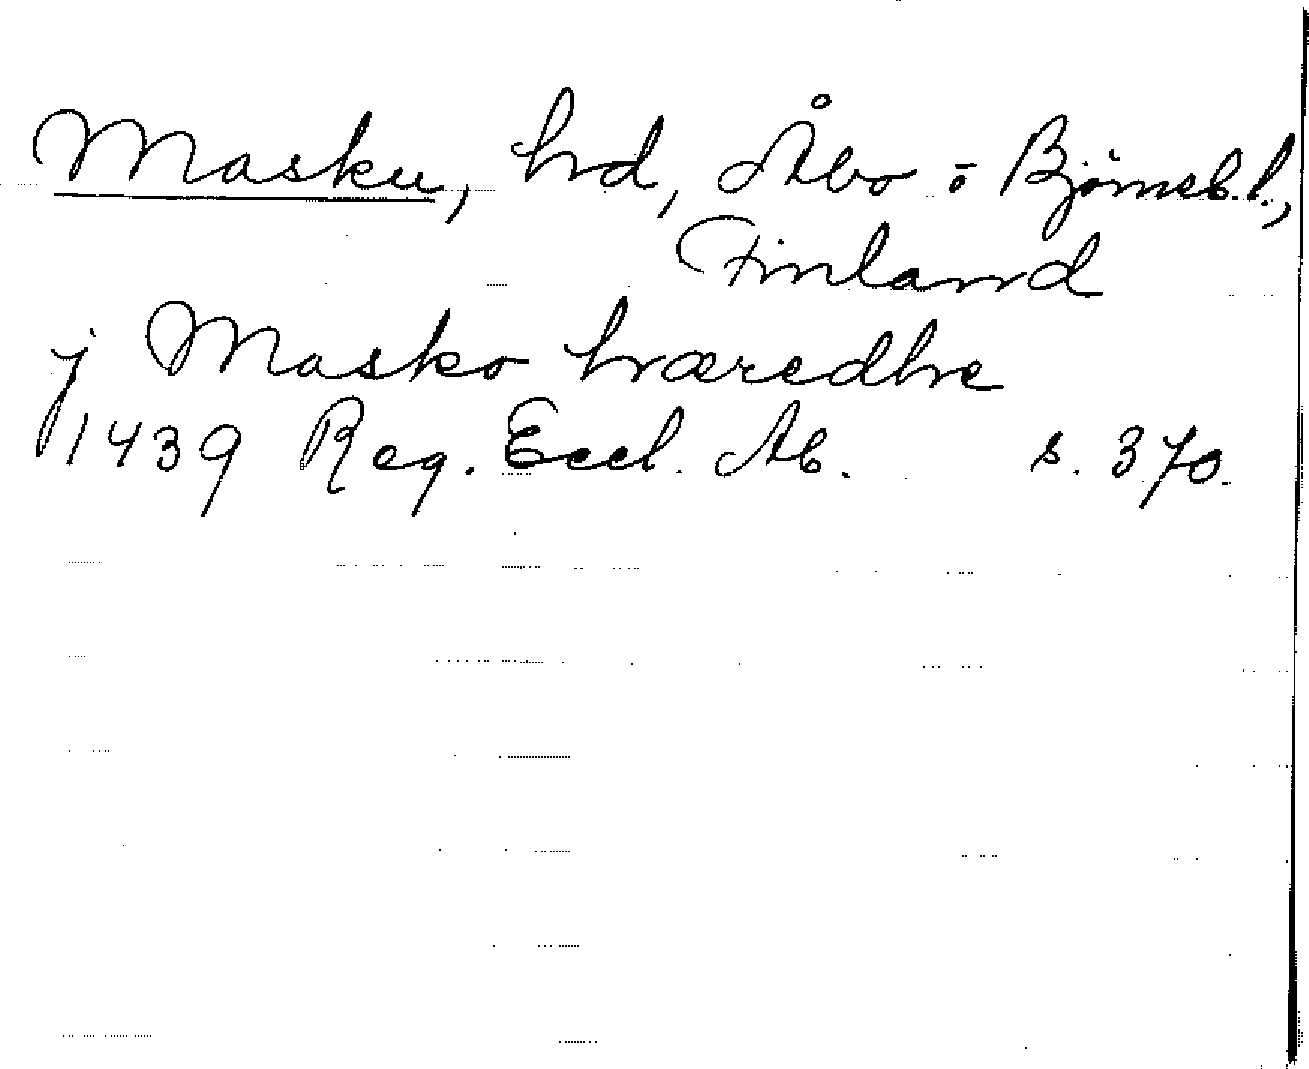 Masku, hrd, Åbo o Bjørneb.l.,
Finland
j Masko hræredhe
1439 Reg. Eccl. Ab. s. 370.